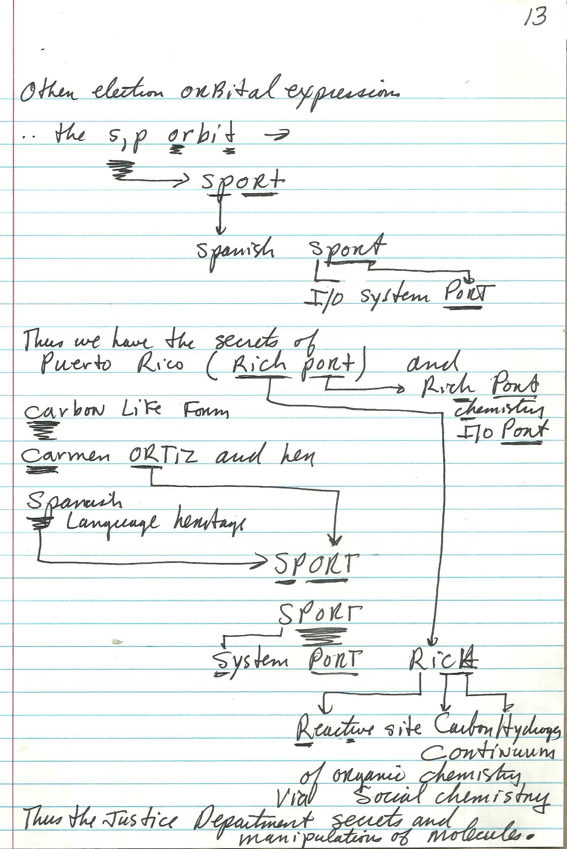 13
Other electron orBital expressions
.. the s,p orbit →
SPORT
Spanish Sport
I/O system PORT
Thus we have the secrets of
Puerto Rico (Rich port) and
Rich Port
chemistry
I/O Port
carbon Life Form
Carmen ORTIZ and her
Spanish
Language heritage
SPORT
SPORT
System PORT RicH
Reactive site Carbon/Hydrogen
Continuum
of organic chemistry
Via Social chemistry
Thus the Justice Department secrets and
manipulations of molecules.